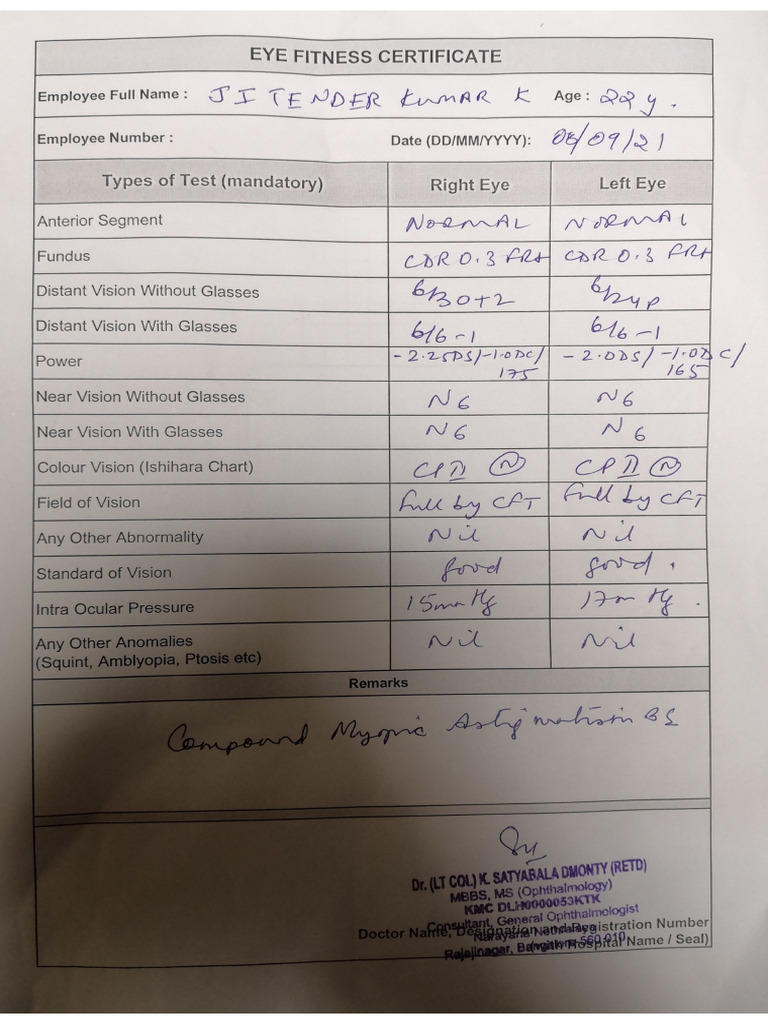 EYE FITNESS CERTIFICATE
Employee Full Name : JITENDER KUMAR K Age : 22 y.
Employee Number : Date (DD/MM/YYYY): 06/09/21
Types of Test (mandatory) Right Eye Left Eye
Anterior Segment NORMAL NORMAL
Fundus CDR 0.3 FR+ CDR 0.3 FR+
Distant Vision Without Glasses 6/30+2 6/24P
Distant Vision With Glasses 6/6-1 6/6-1
Power -2.25DS/-1.0DC/175 -2.0DS/-1.0DC/165
Near Vision Without Glasses N6 N6
Near Vision With Glasses N6 N6
Colour Vision (Ishihara Chart) CP II N CP II N
Field of Vision Full by CFT Full by CFT
Any Other Abnormality Nil Nil
Standard of Vision Good Good.
Intra Ocular Pressure 15mm Hg 17m Hg.
Any Other Anomalies Nil Nil
(Squint, Amblyopia, Ptosis etc)
Remarks
Compound Myopic Astigmatism BE
Dr. (LT COL) K. SATYABALA DMONTY (RETD)
MBBS, MS (Ophthalmology)
KMC DLH0000053KTK
Consultant, General Ophthalmologist
Doctor Name, Designation and Registration Number
Narayana Nethralaya
Rajajinagar, Bangalore-560 010
(with Hospital Name / Seal)